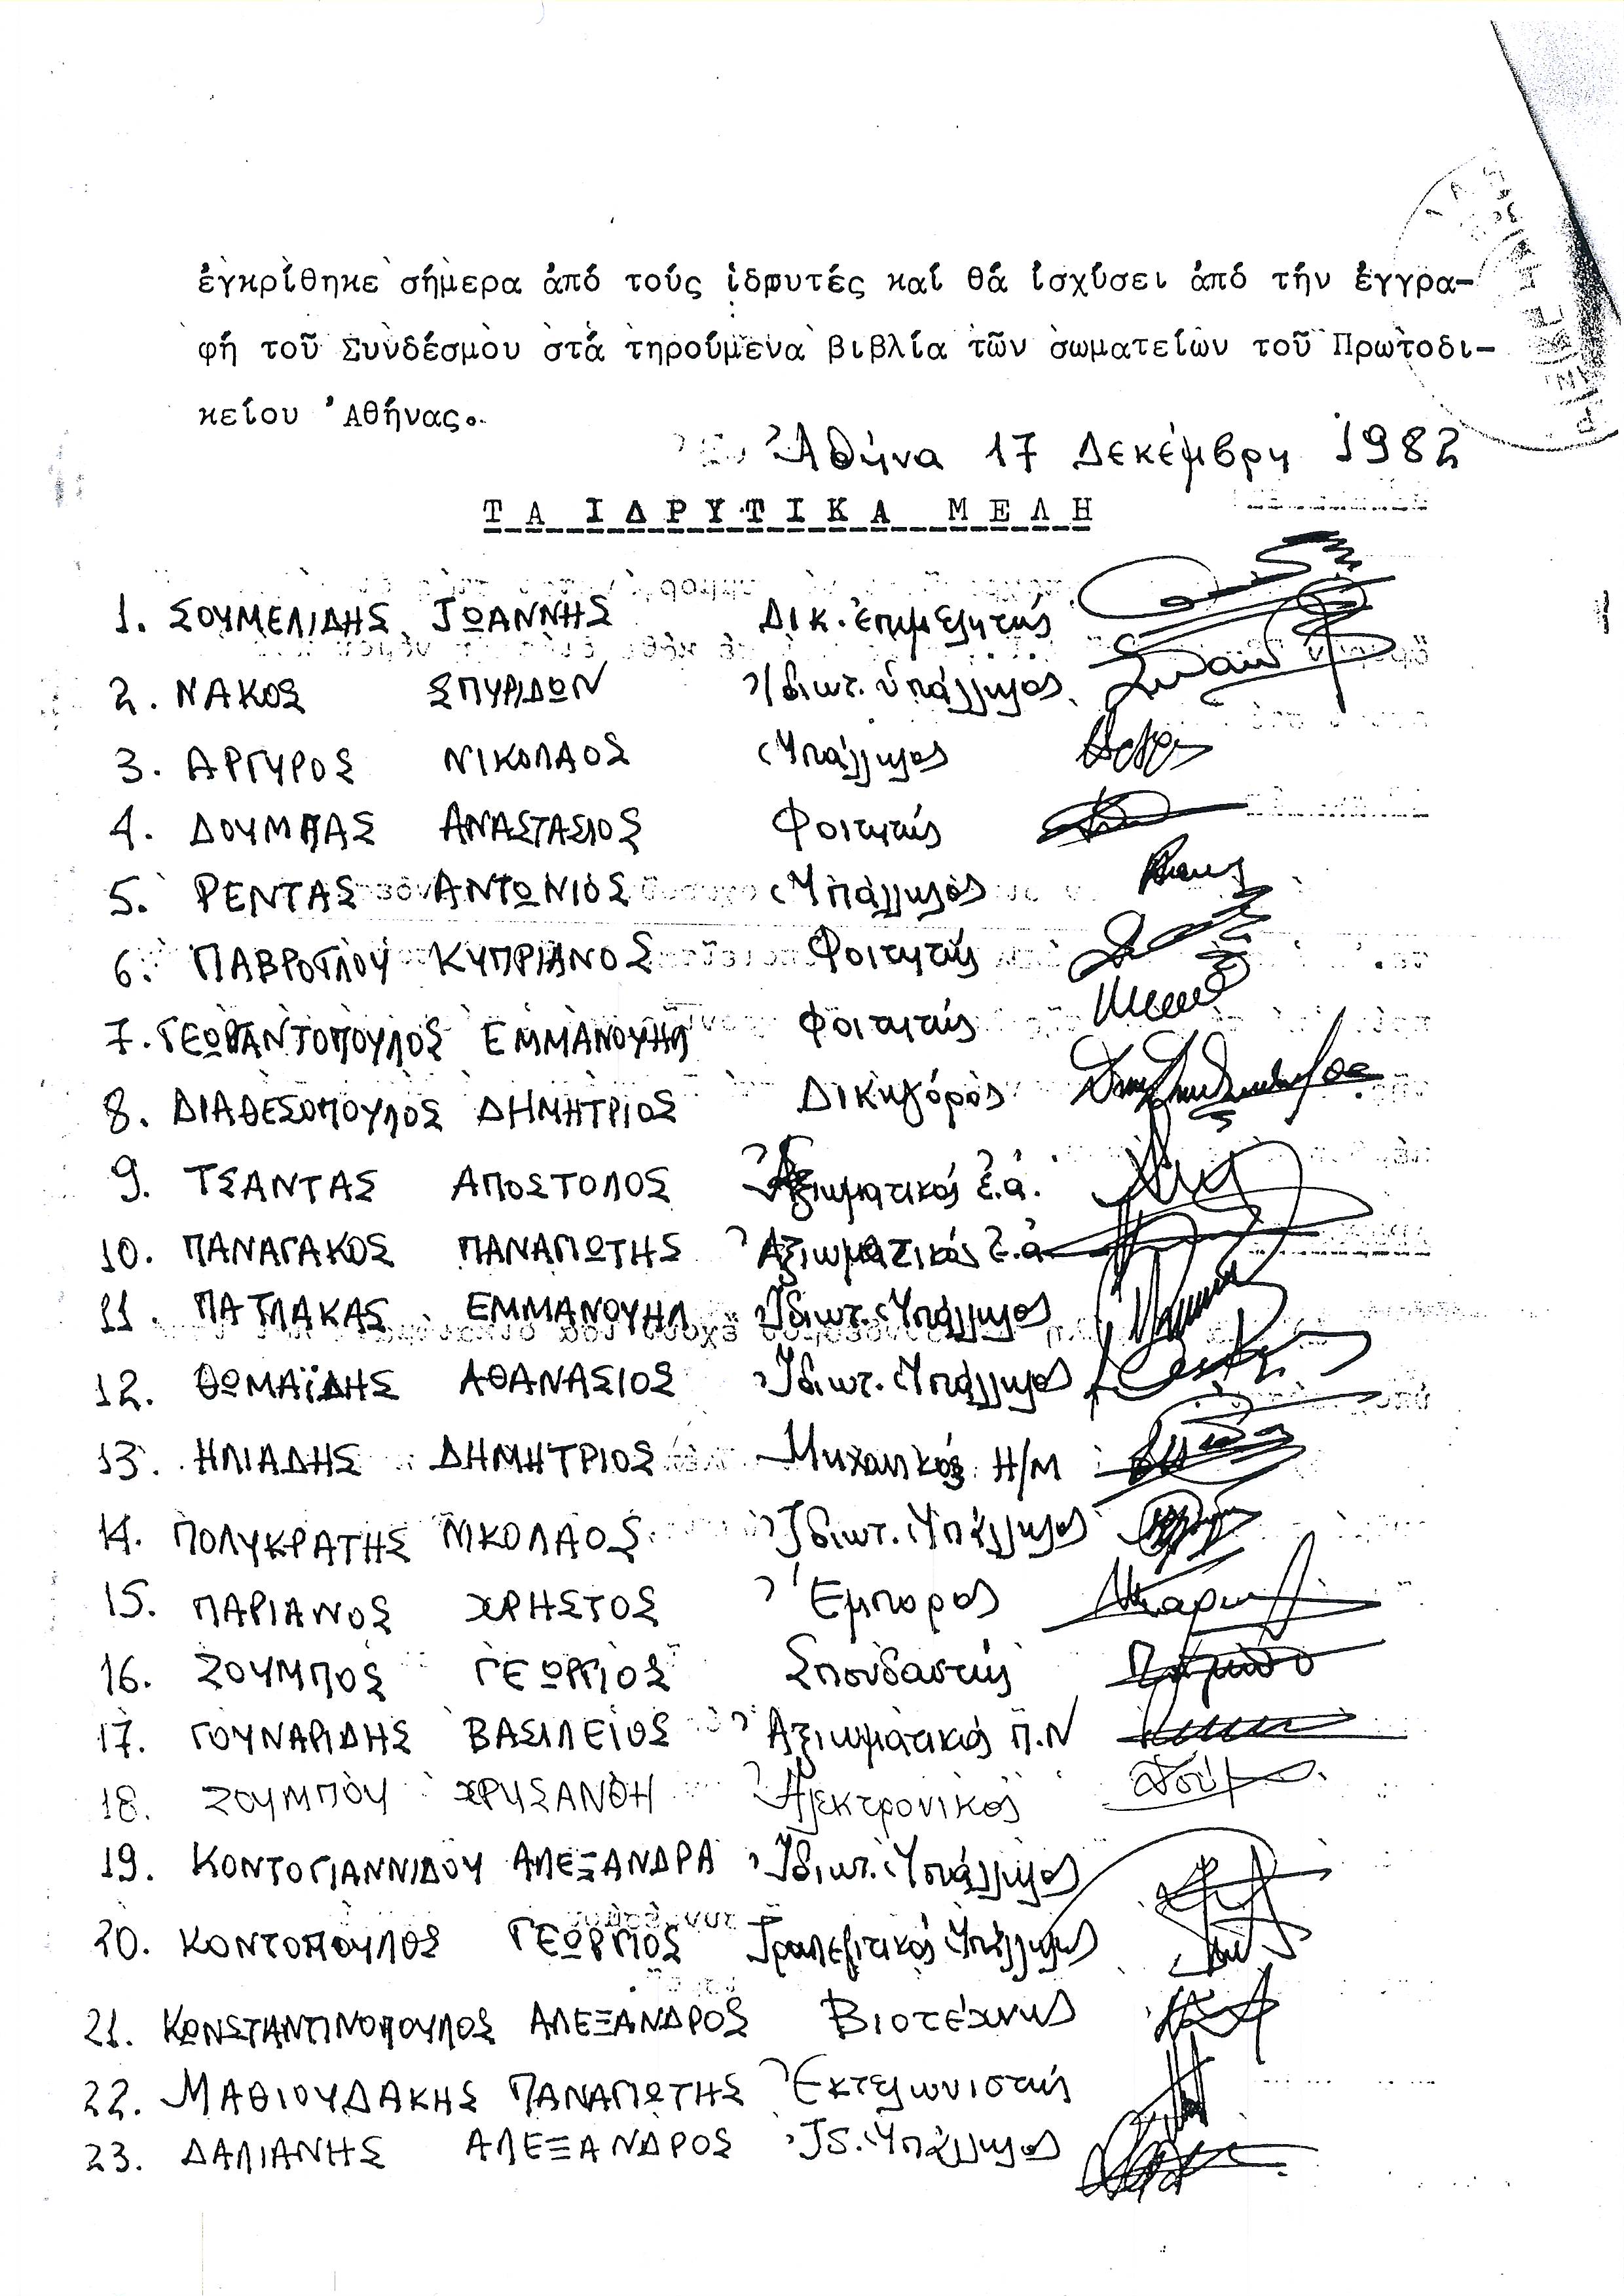 ἐγκρίθηκε σήμερα ἀπό τούς ἱδρυτές καί θά ἰσχύσει ἀπό τήν ἐγγρα-
φή τοῦ Συνδέσμου στά τηρούμενα βιβλία τῶν σωματείων τοῦ Πρωτοδι-
κείου Ἀθήνας.
Ἀθήνα 17 Δεκέμβρη 1982
ΤΑ ΙΔΡΥΤΙΚΑ ΜΕΛΗ
1. ΣΟΥΜΕΛΙΔΗΣ ΙΩΑΝΝΗΣ Δικ. ἐπιμελητής
2. ΝΑΚΟΣ ΣΠΥΡΙΔΩΝ Ἰδιωτ. ὑπάλληλος
3. ΑΡΓΥΡΟΣ ΝΙΚΟΛΑΟΣ Ὑπάλληλος
4. ΔΟΥΜΠΑΣ ΑΝΑΣΤΑΣΙΟΣ Φοιτητής
5. ΡΕΝΤΑΣ ΑΝΤΩΝΙΟΣ Ὑπάλληλος
6. ΠΑΒΡΟΓΛΟΥ ΚΥΠΡΙΑΝΟΣ Φοιτητής
7. ΓΕΩΡΓΑΝΤΟΠΟΥΛΟΣ ΕΜΜΑΝΟΥΗΛ Φοιτητής
8. ΔΙΑΘΕΣΟΠΟΥΛΟΣ ΔΗΜΗΤΡΙΟΣ Δικηγόρος
9. ΤΣΑΝΤΑΣ ΑΠΟΣΤΟΛΟΣ Ἀξιωματικός ἐ.ἀ.
10. ΠΑΝΑΓΑΚΟΣ ΠΑΝΑΓΙΩΤΗΣ Ἀξιωματικός ἐ.ἀ.
11. ΠΑΤΛΑΚΑΣ ΕΜΜΑΝΟΥΗΛ Ἰδιωτ. Ὑπάλληλος
12. ΘΩΜΑΪΔΗΣ ΑΘΑΝΑΣΙΟΣ Ἰδιωτ. Ὑπάλληλος
13. ΗΛΙΑΔΗΣ ΔΗΜΗΤΡΙΟΣ Μηχανικός Η/Μ
14. ΠΟΛΥΚΡΑΤΗΣ ΝΙΚΟΛΑΟΣ Ἰδιωτ. Ὑπάλληλος
15. ΠΑΡΙΑΝΟΣ ΧΡΗΣΤΟΣ Ἔμπορος
16. ΖΟΥΜΠΟΣ ΓΕΩΡΓΙΟΣ Σπουδαστής
17. ΓΟΥΝΑΡΙΔΗΣ ΒΑΣΙΛΕΙΟΣ Ἀξιωματικός Π.Ν
18. ΖΟΥΜΠΟΥ ΧΡΥΣΑΝΘΗ Ἠλεκτρονικός
19. ΚΟΝΤΟΓΙΑΝΝΙΔΟΥ ΑΛΕΞΑΝΔΡΑ Ἰδιωτ. Ὑπάλληλος
20. ΚΟΝΤΟΠΟΥΛΟΣ ΓΕΩΡΓΙΟΣ Τραπεζιτικός Ὑπάλληλος
21. ΚΩΝΣΤΑΝΤΙΝΟΠΟΥΛΟΣ ΑΛΕΞΑΝΔΡΟΣ Βιοτέχνης
22. ΜΑΘΙΟΥΔΑΚΗΣ ΠΑΝΑΓΙΩΤΗΣ Ἐκτελωνιστής
23. ΔΑΛΙΑΝΗΣ ΑΛΕΞΑΝΔΡΟΣ Ἰδ. Ὑπάλληλος